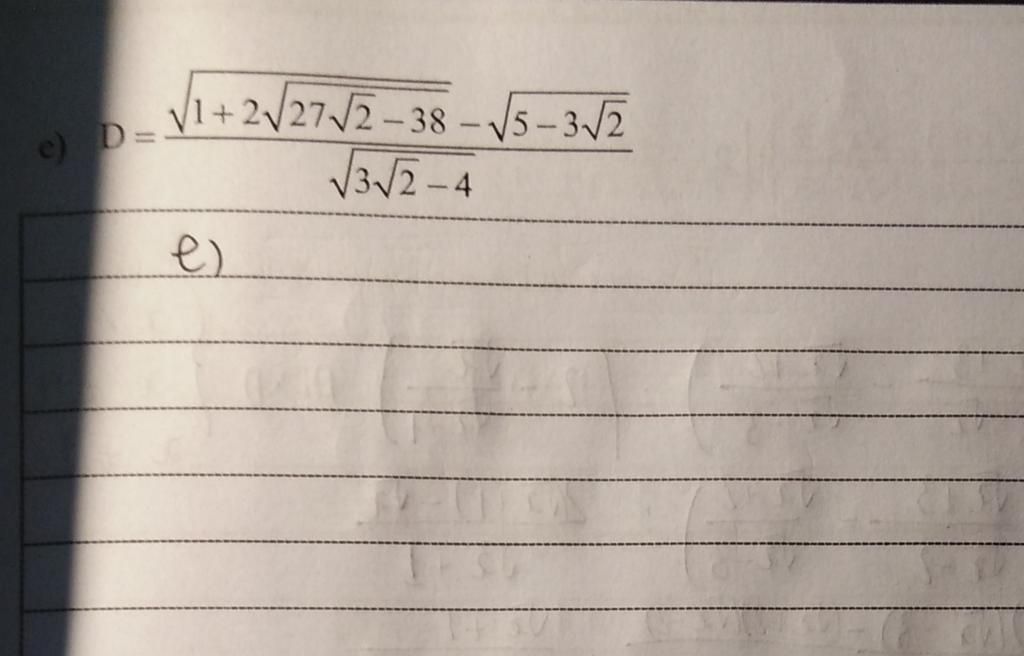 e) D = \frac{\sqrt{1+2\sqrt{27\sqrt{2}-38}}-\sqrt{5-3\sqrt{2}}}{\sqrt{3\sqrt{2}-4}}
e)